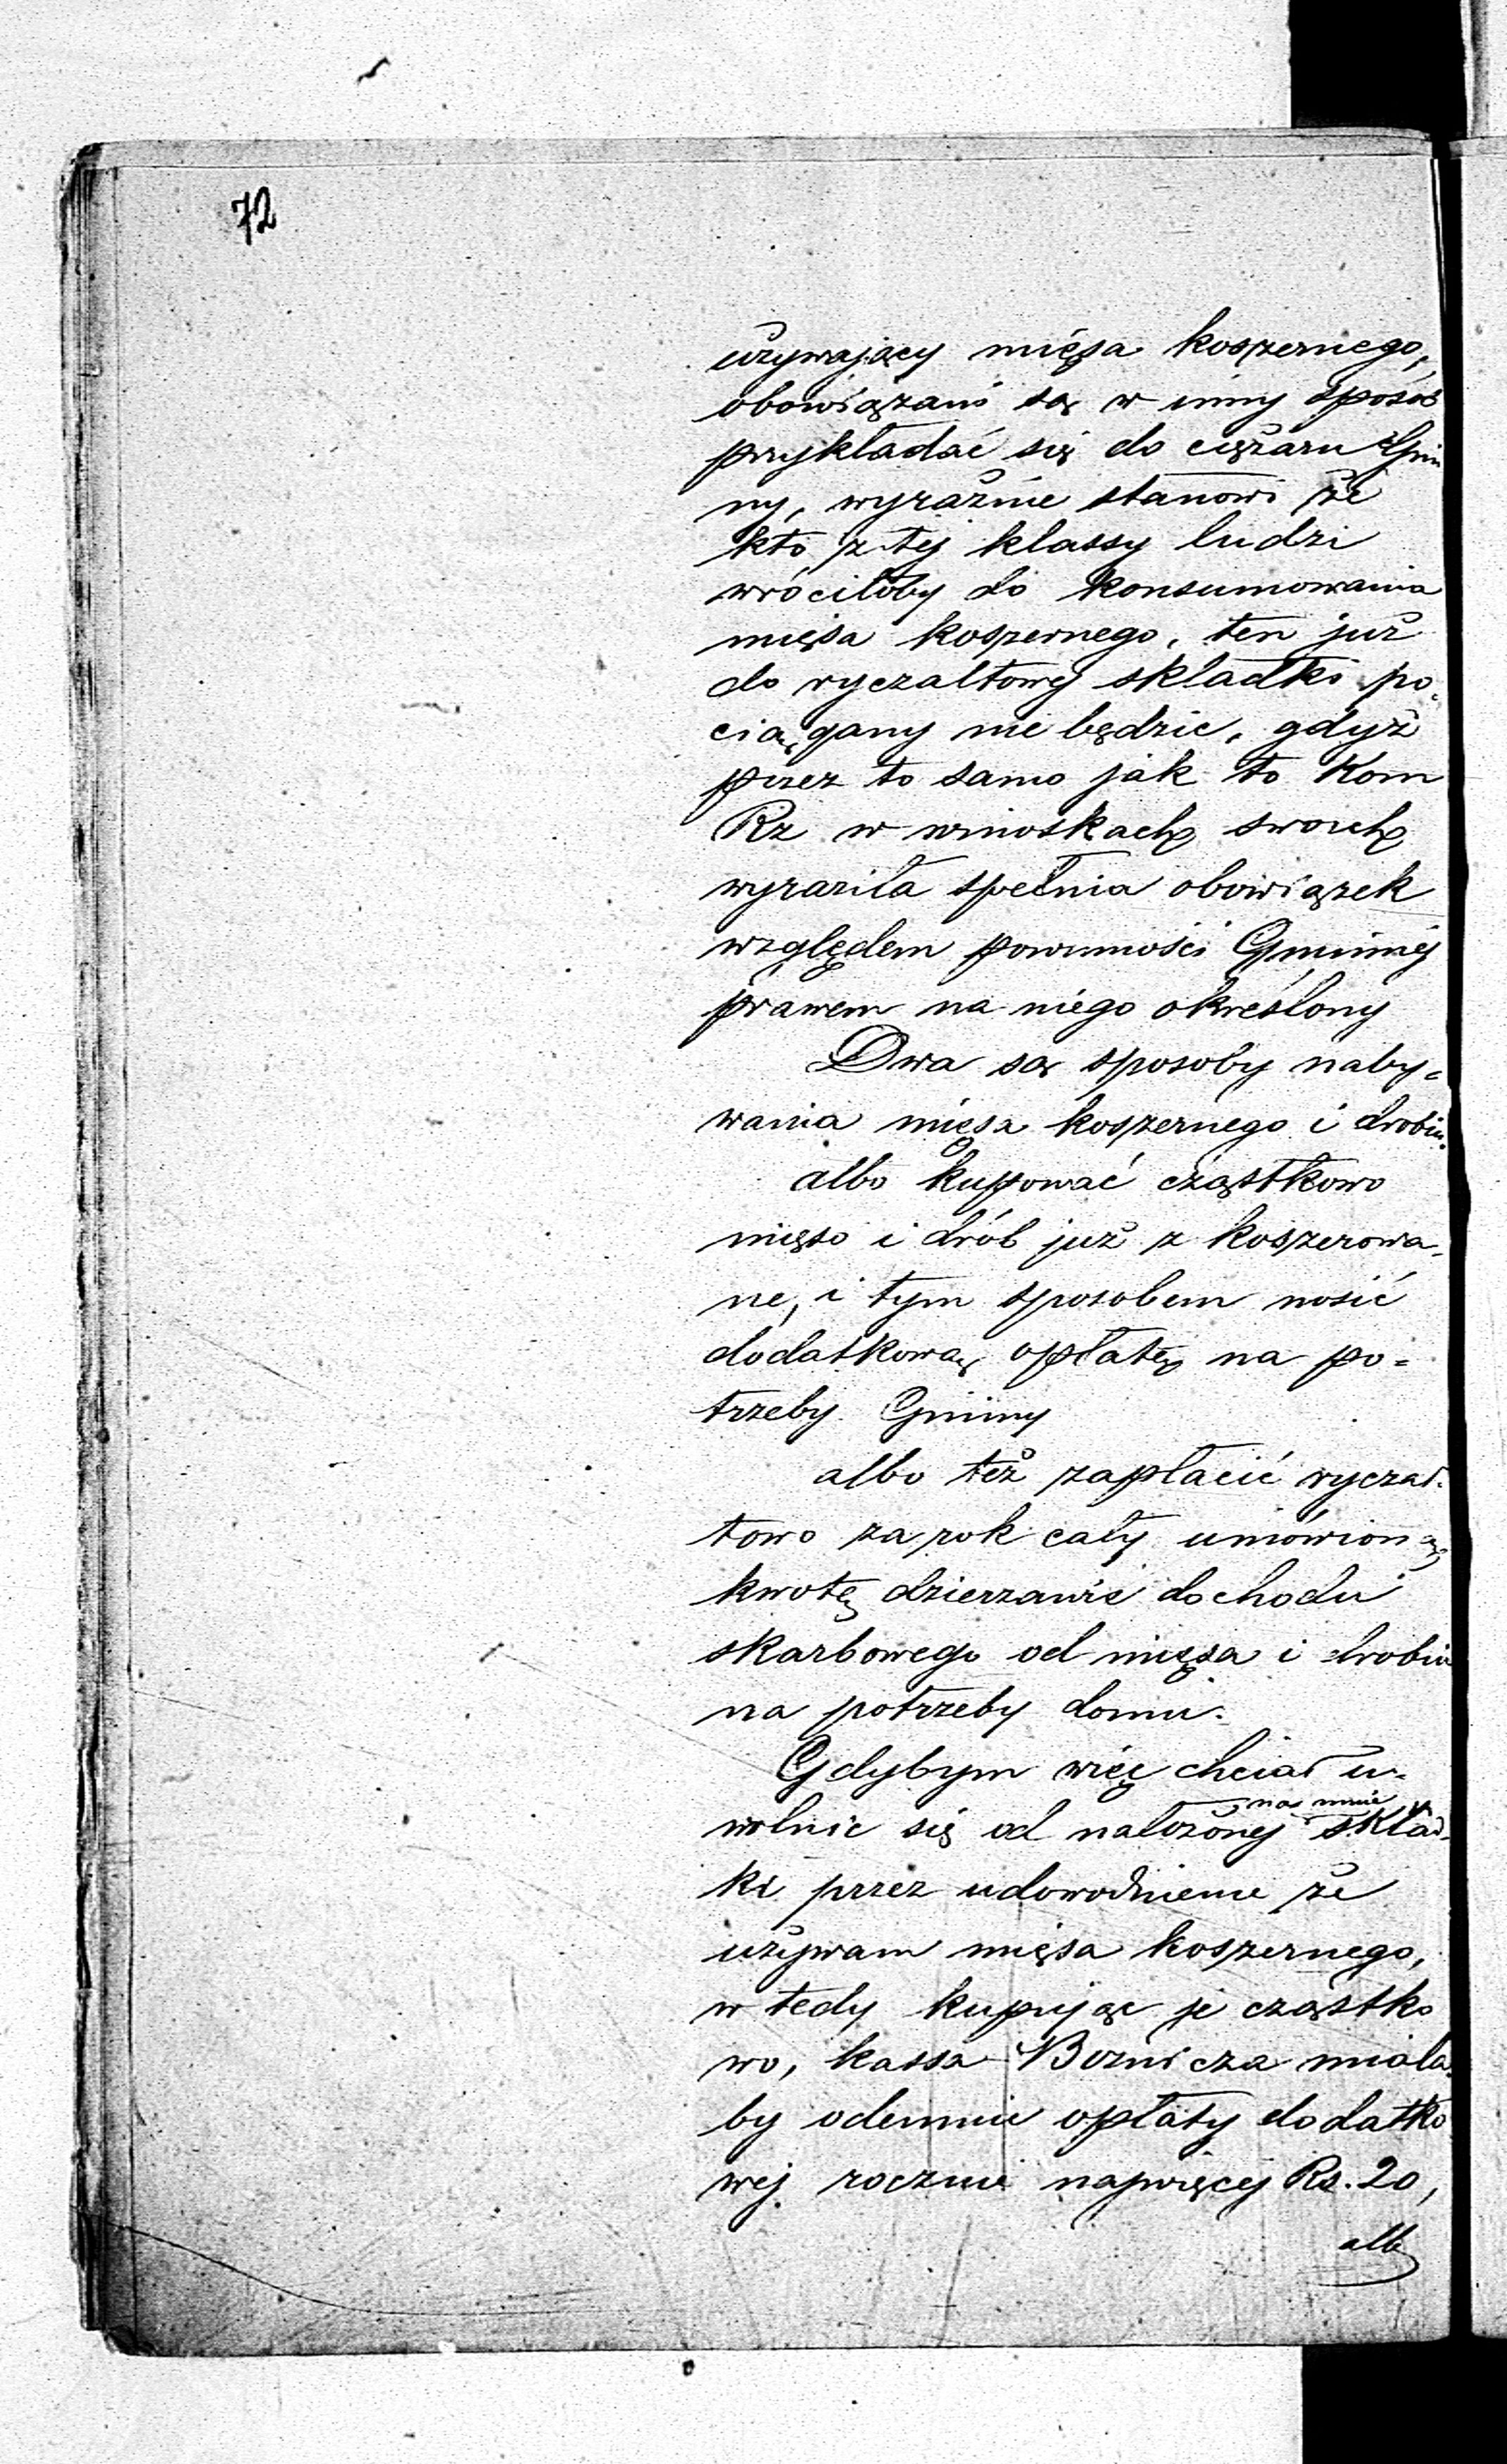 72
używający mięsa koszernego,
obowiązani są w inny sposób
przykładać się do ciężaru Gmi
ny, wyraźnie stanowi że
kto z tej klassy ludzi
wróciłby do konsumowania
mięsa koszernego, ten już
do ryczałtowej składki po-
ciągany nie będzie, gdyż
przez to samo jak to Kom
Rz w wnioskach swoich
wyraziła spełnia obowiązek
względem powinności Gminnej
prawem na niego określony
Dwa są sposoby naby=
wania mięsa koszernego i drobiu.
albo kupować cząstkowo
mięso i drób już z koszerowa-
ne, i tym sposobem nosić
dodatkową opłatę na po=
trzeby Gminy
albo też zapłacić ryczał-
towo za rok cały umówioną
kwotę dzierzawie dochodu
skarbowego od mięsa i drobiu
na potrzeby domu.
Gdybym więc chciał u-
na mnie
wolnić się od nałożonej skład-
ki przez udowodnienie że
używam mięsa koszernego,
w tedy kupując je cząstko
wo, kassa Boznicza miała
by odemnie opłaty dodatko
wej rocznie najwięcej Rs. 20,
albo